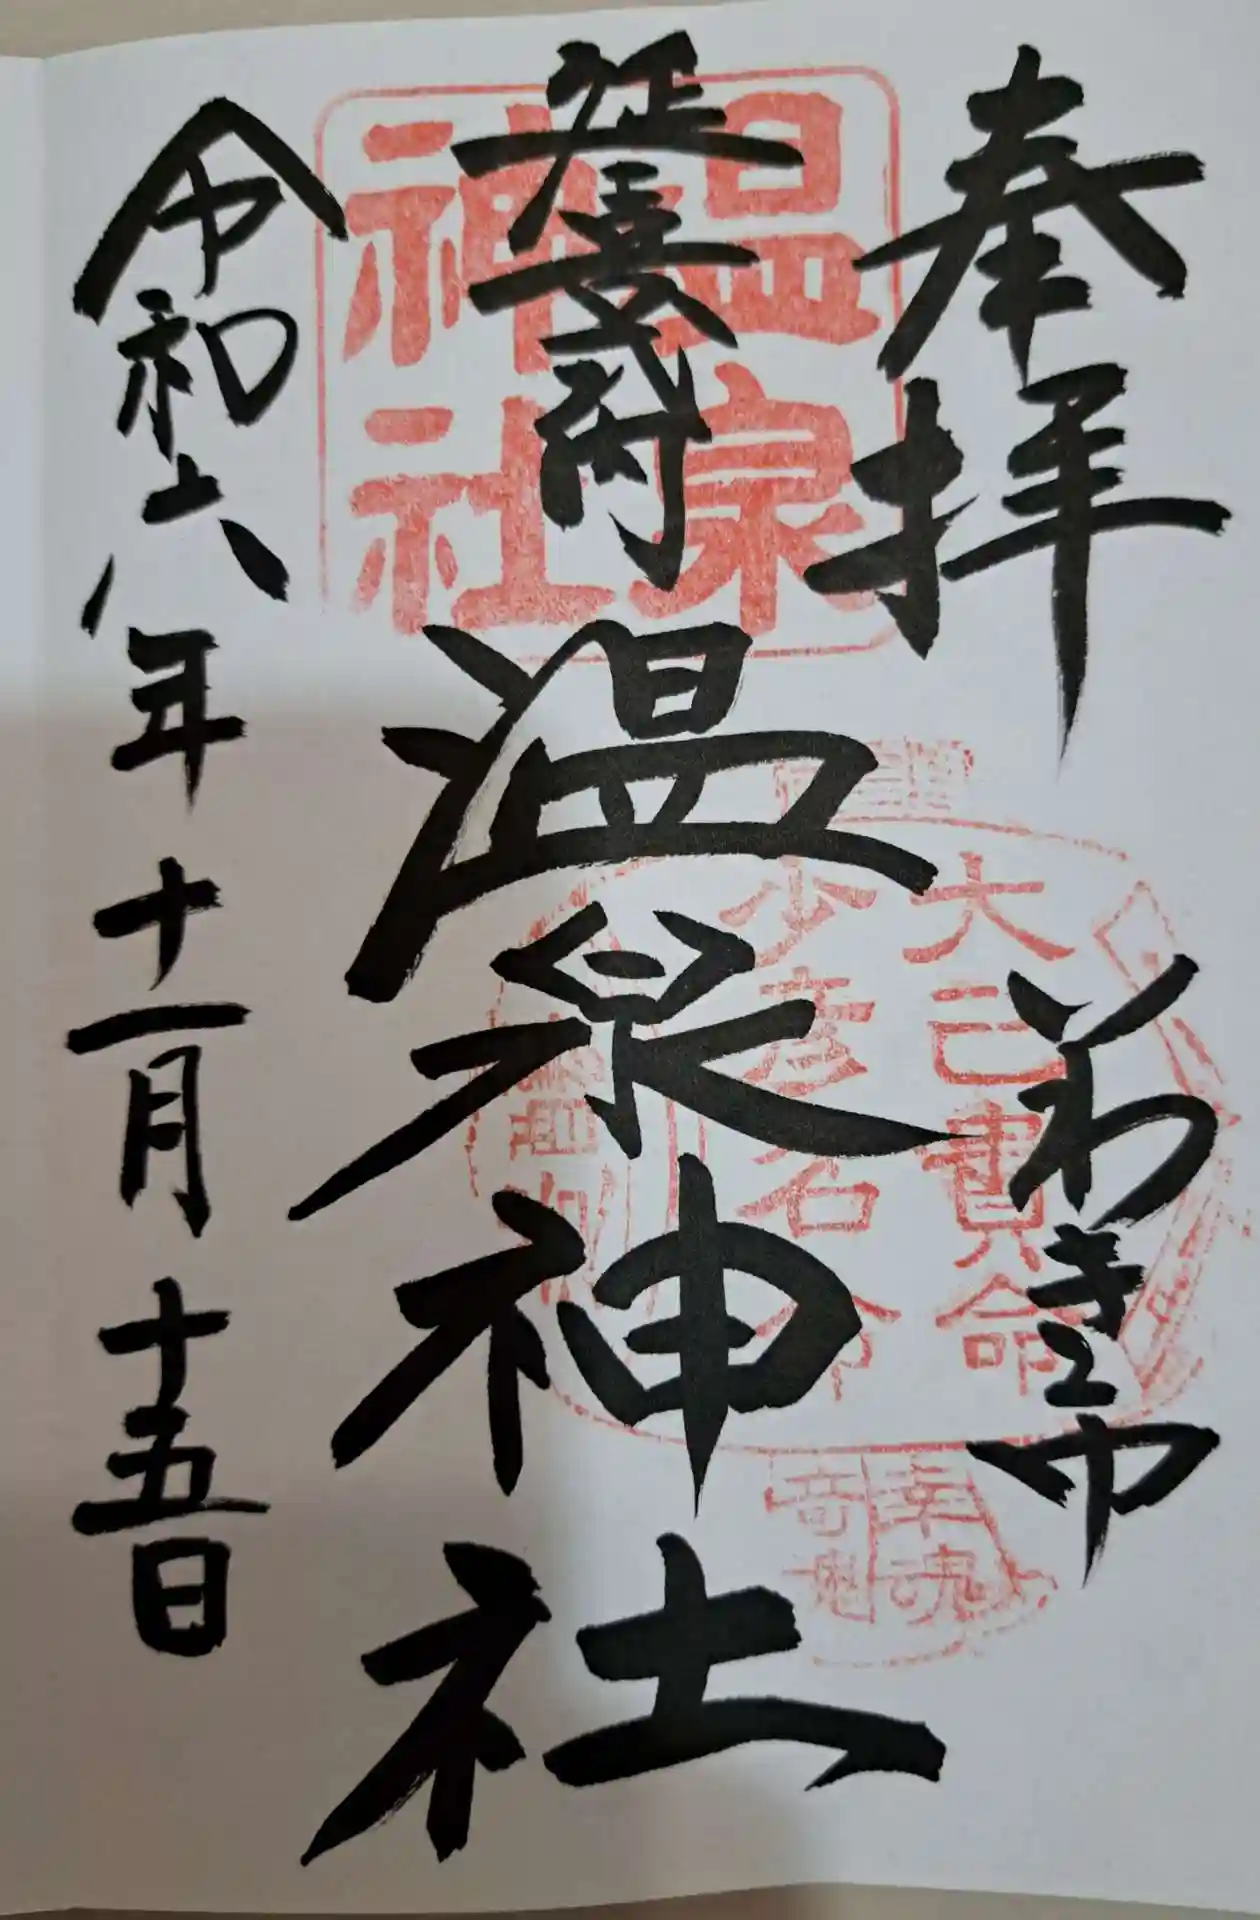 奉拝
いわき市
延喜式内
温泉神社
令和六年十一月十五日
温泉
神社
大己貴命
少彦名命
幸魂
奇魂